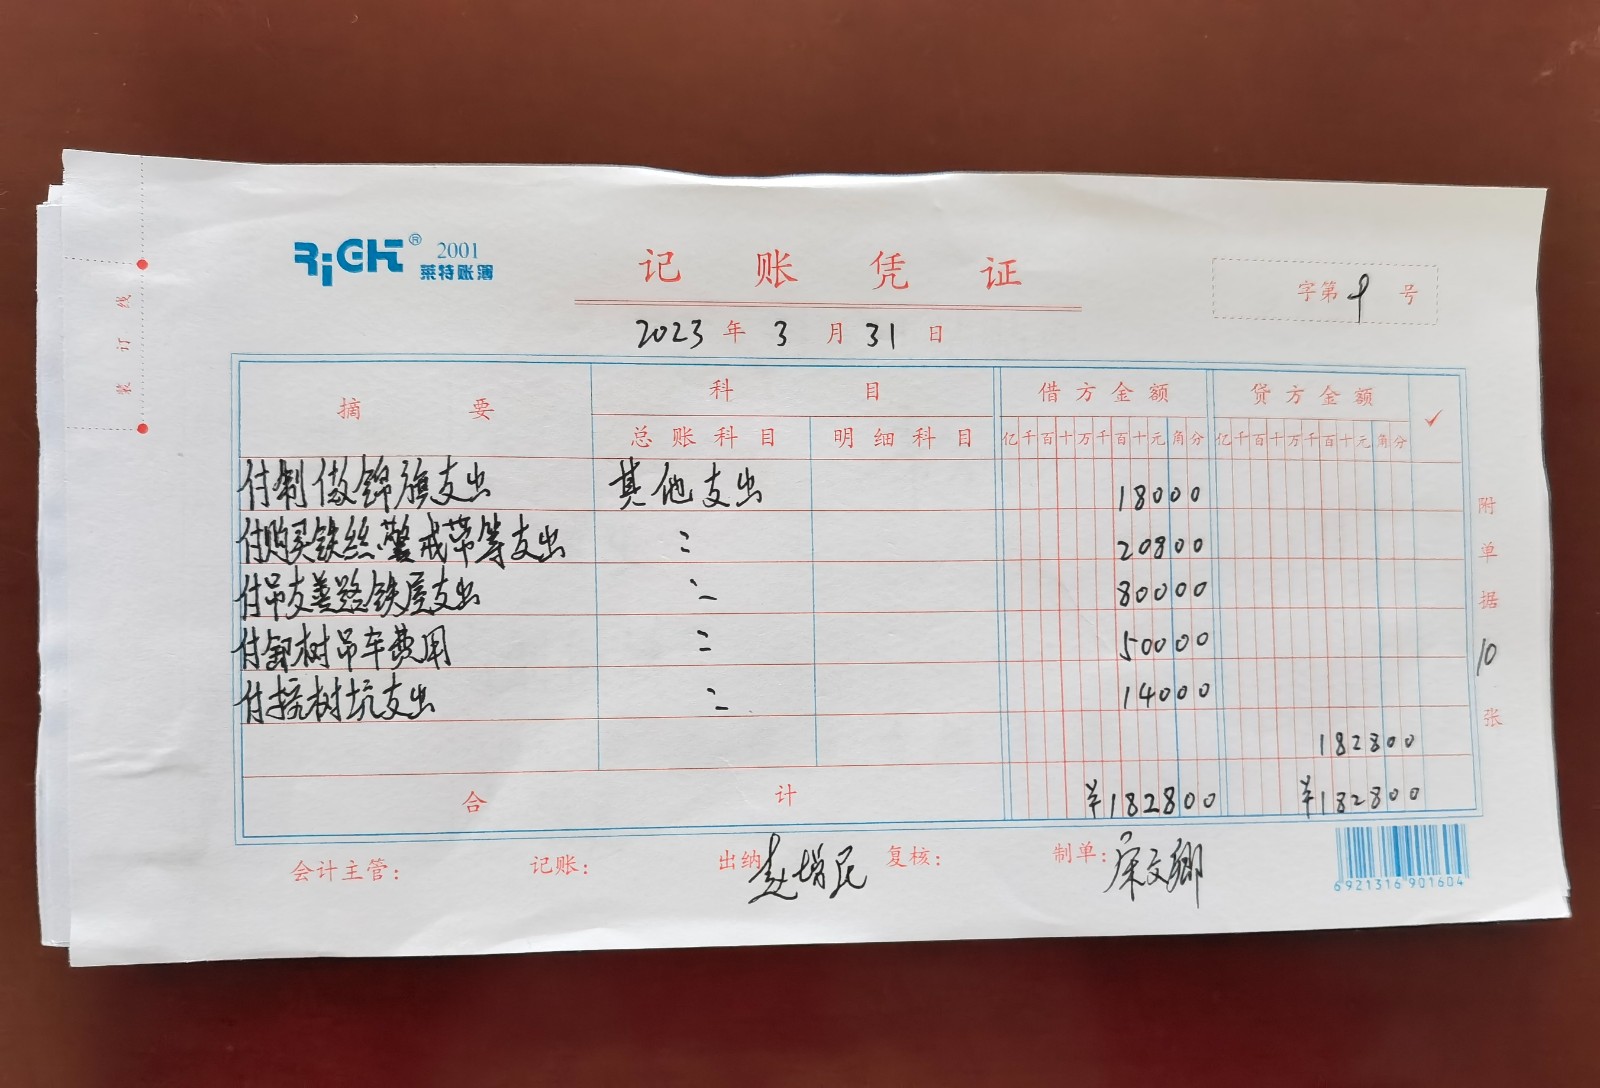 RiGHt® 2001
莱特账簿
记账凭证
字第 9 号
2023 年 3 月 31 日
装订线
摘要 科目 借方金额 贷方金额 ✓
总账科目 明细科目 亿千百十万千百十元角分 亿千百十万千百十元角分
付制做锦旗支出 其他支出 18000
付购买铁丝.警戒带等支出 〃 20800
付吊友善路铁屋支出 〃 80000
付卸树吊车费用 〃 50000
付挖树坑支出 〃 14000
182800
合计 ¥182800 ¥182800
附单据 10 张
会计主管: 记账: 出纳 赵增民 复核: 制单: 宋文卿
6921316901604